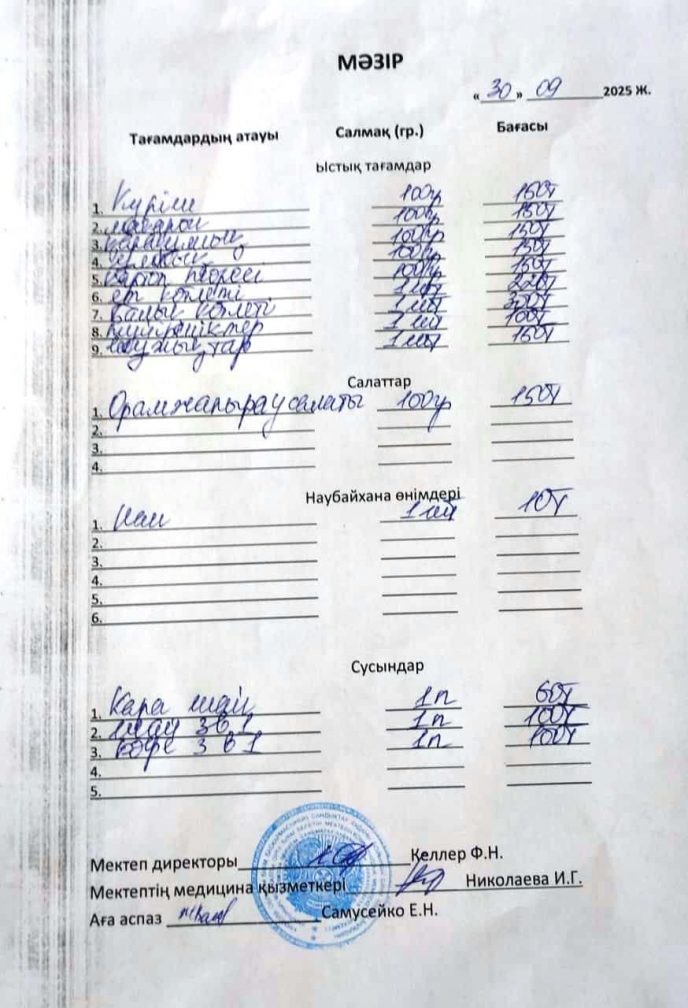 МӘЗІР
« 30 » 09 2025 Ж.
Тағамдардың атауы Салмақ (гр.) Бағасы
Ыстық тағамдар
1. Күріш 100гр 150т
2. макарон 100гр 150т
3. қарақұмық 100гр 150т
4. 100гр 150т
5. картоп пюресі 100гр 150т
6. ет котлеті 1 шт 220т
7. балық котлеті 1 шт
8. 1 шт 100т
9. шұжықтар 1 шт 150т
Салаттар
1. Орамжапырақ салаты 100гр 150т
2.
3.
4.
Наубайхана өнімдері
1. Нан 1 шт 10т
2.
3.
4.
5.
6.
Сусындар
1. Қара шай 1п 60т
2. шай 3 в 1 1п 100т
3. кофе 3 в 1 1п 100т
4.
5.
Мектеп директоры Келлер Ф.Н.
Мектептің медицина қызметкері Николаева И.Г.
Аға аспаз Самусейко Е.Н.